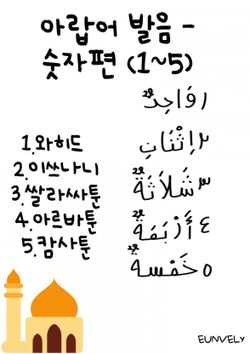 아랍어 발음 -
숫자편 (1~5)
1.와히드
2.이쓰나니
3.쌀라싸툰
4.아르바툰
5.캄사툰
١ وَاحِدٌ
٢ اِثْنَانِ
٣ ثَلَاثَةٌ
٤ أَرْبَعَةٌ
٥ خَمْسَةٌ
EUNVELY